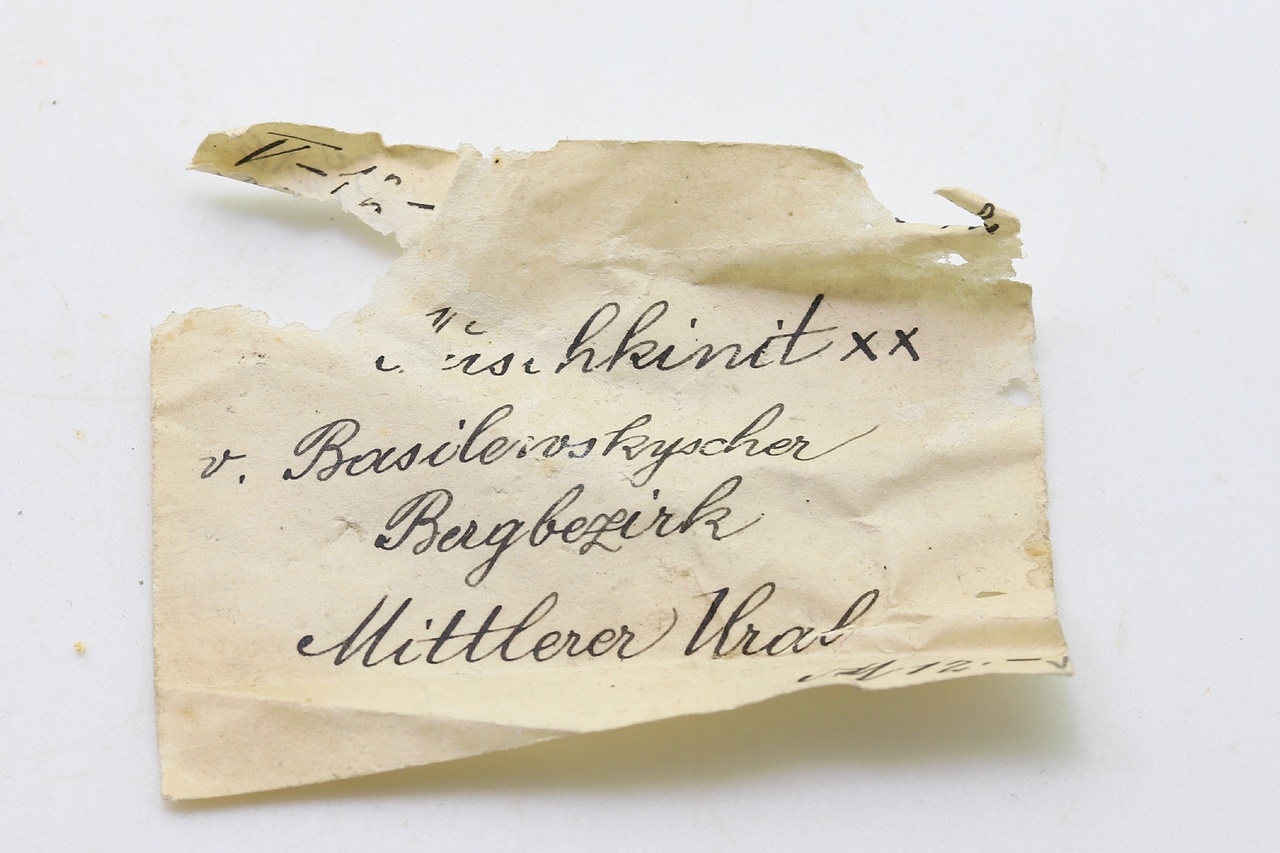 V-12-
v. Basilewskyscher
Bergbezirk
Mittlerer Ural
M 12.-